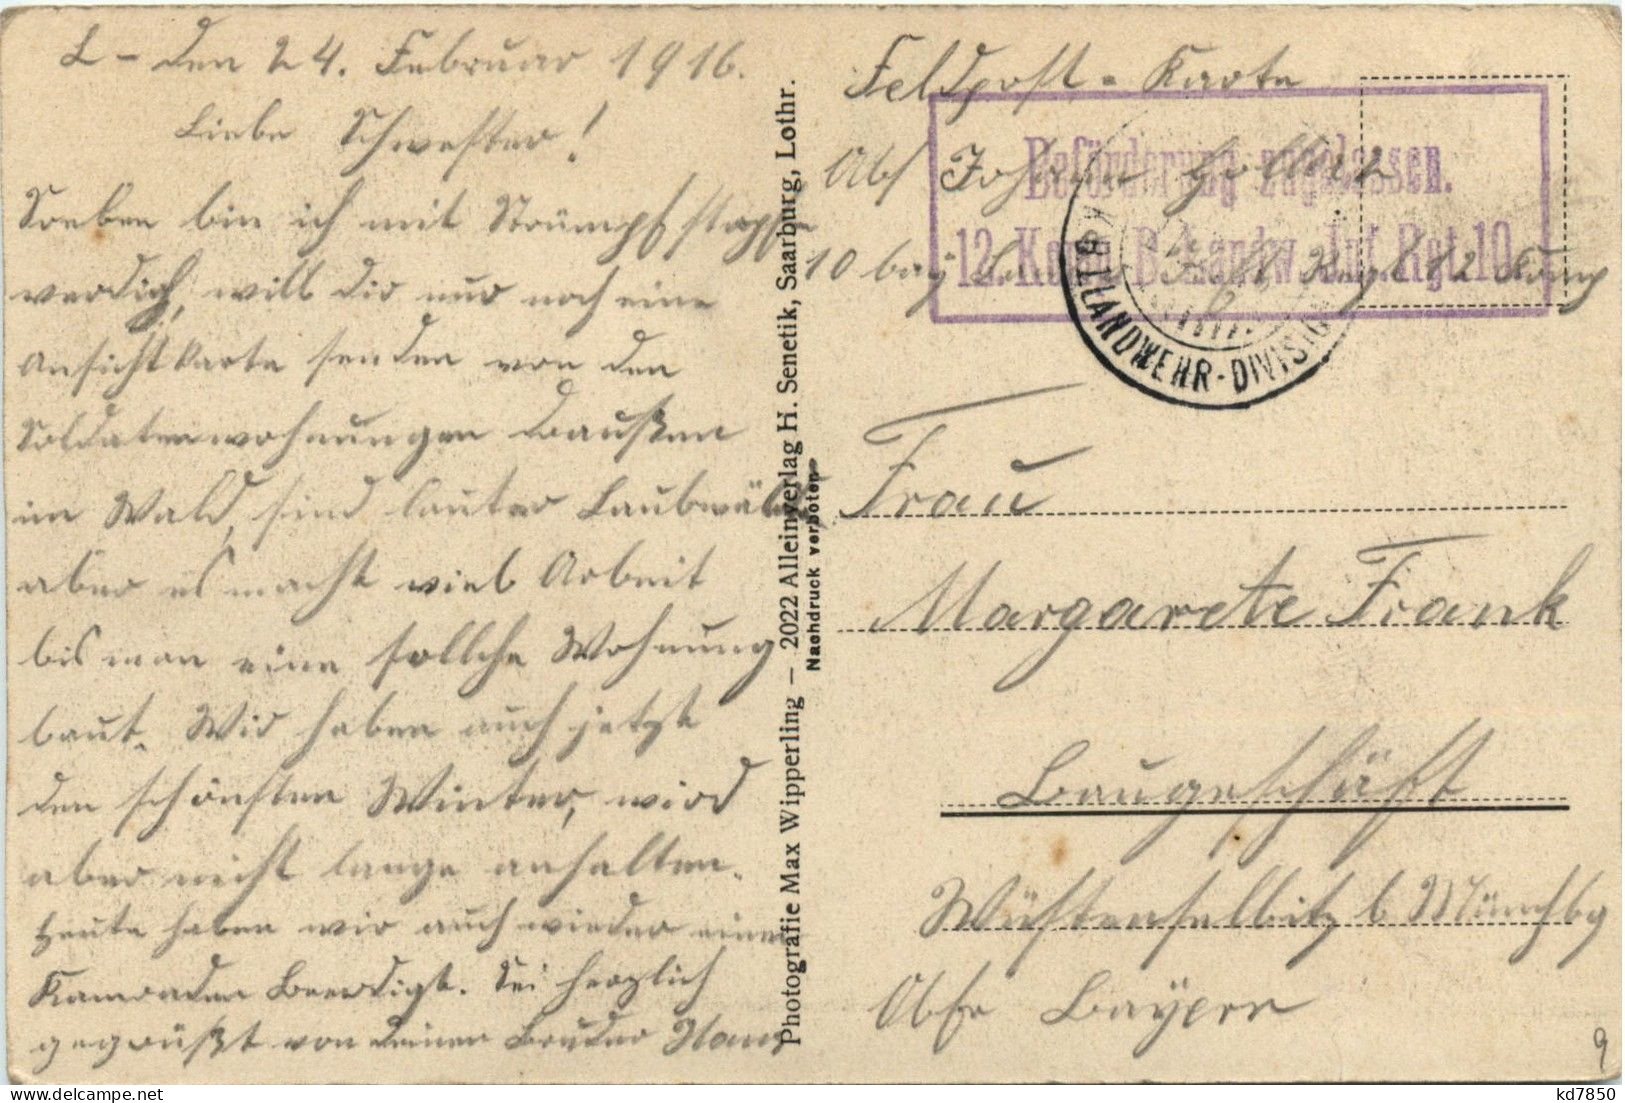 L – den 24. Februar 1916.
Liebe Schwester!
Soeben bin ich mit Strümpf stopfen
verdich, will dir nur noch eine
Ansichtkarte senden von den
Soldatenwohnungen draußen
im Wald, sind lauter Laubwälder
aber es macht viel Arbeit
bis man eine sollche Wohnung
baut. Wir haben auch jetzt
den schönsten Winter, wird
aber nicht lange anhalten.
Heute haben wir auch wieder einen
Kamraden Beerdigt. Sei herzlich
gegrüßt von deiner Bruder Hans
Photografie Max Wipperling – 2022 Alleinverlag H. Senetik, Saarburg, Lothr.
Nachdruck verboten
Feldpost-Karte
Abs Johann
10 bay Regt 12 Komp
Beförderung zugelassen.
12. Komp. B. Landw. Inf. Rgt. 10.
LANDWEHR-DIVISION
Frau
Margarete Frank
Baugeschäft
Wüstenselbitz b Münchbg
Obfr Bayern
9
kd7850